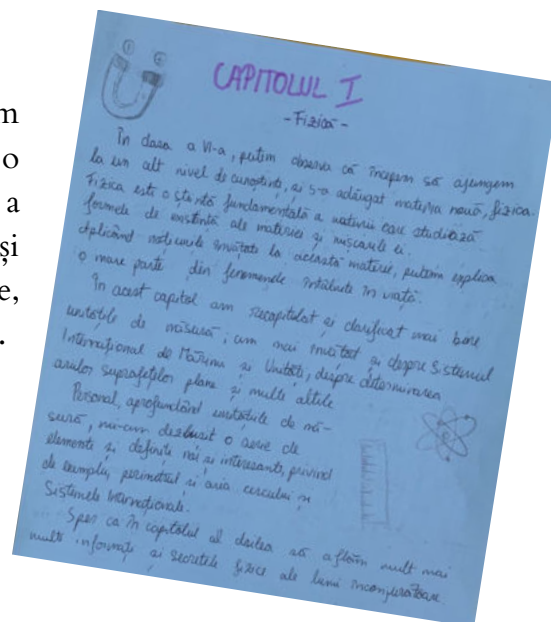 m
o
a
și
e,
.
CAPITOLUL I
- Fizică -
În clasa a VI-a, putem observa că începem să ajungem
la un alt nivel de cunoștințe, și s-a adăugat materia nouă, fizica.
Fizica este o știință fundamentală a naturii care studiază
formele de existență ale materiei și mișcările ei.
Aplicând noțiunile învățate la această materie, putem explica
o mare parte din fenomenele întâlnite în viață.
În acest capitol am recapitulat și clarificat mai bine
unitățile de măsură, am mai învățat și despre Sistemul
Internațional de Măsură și Unități, despre determinarea
ariilor suprafețelor plane și multe altele.
Personal, aprofundând unitățile de mă-
sură, mi-am deslușit o serie de
elemente și definiții noi și interesante, privind
de exemplu, perimetrul și aria cercului și
Sistemele Internaționale.
Sper ca în capitolul al doilea să aflăm mult mai
multe informații și secretele fizice ale lumii înconjurătoare.